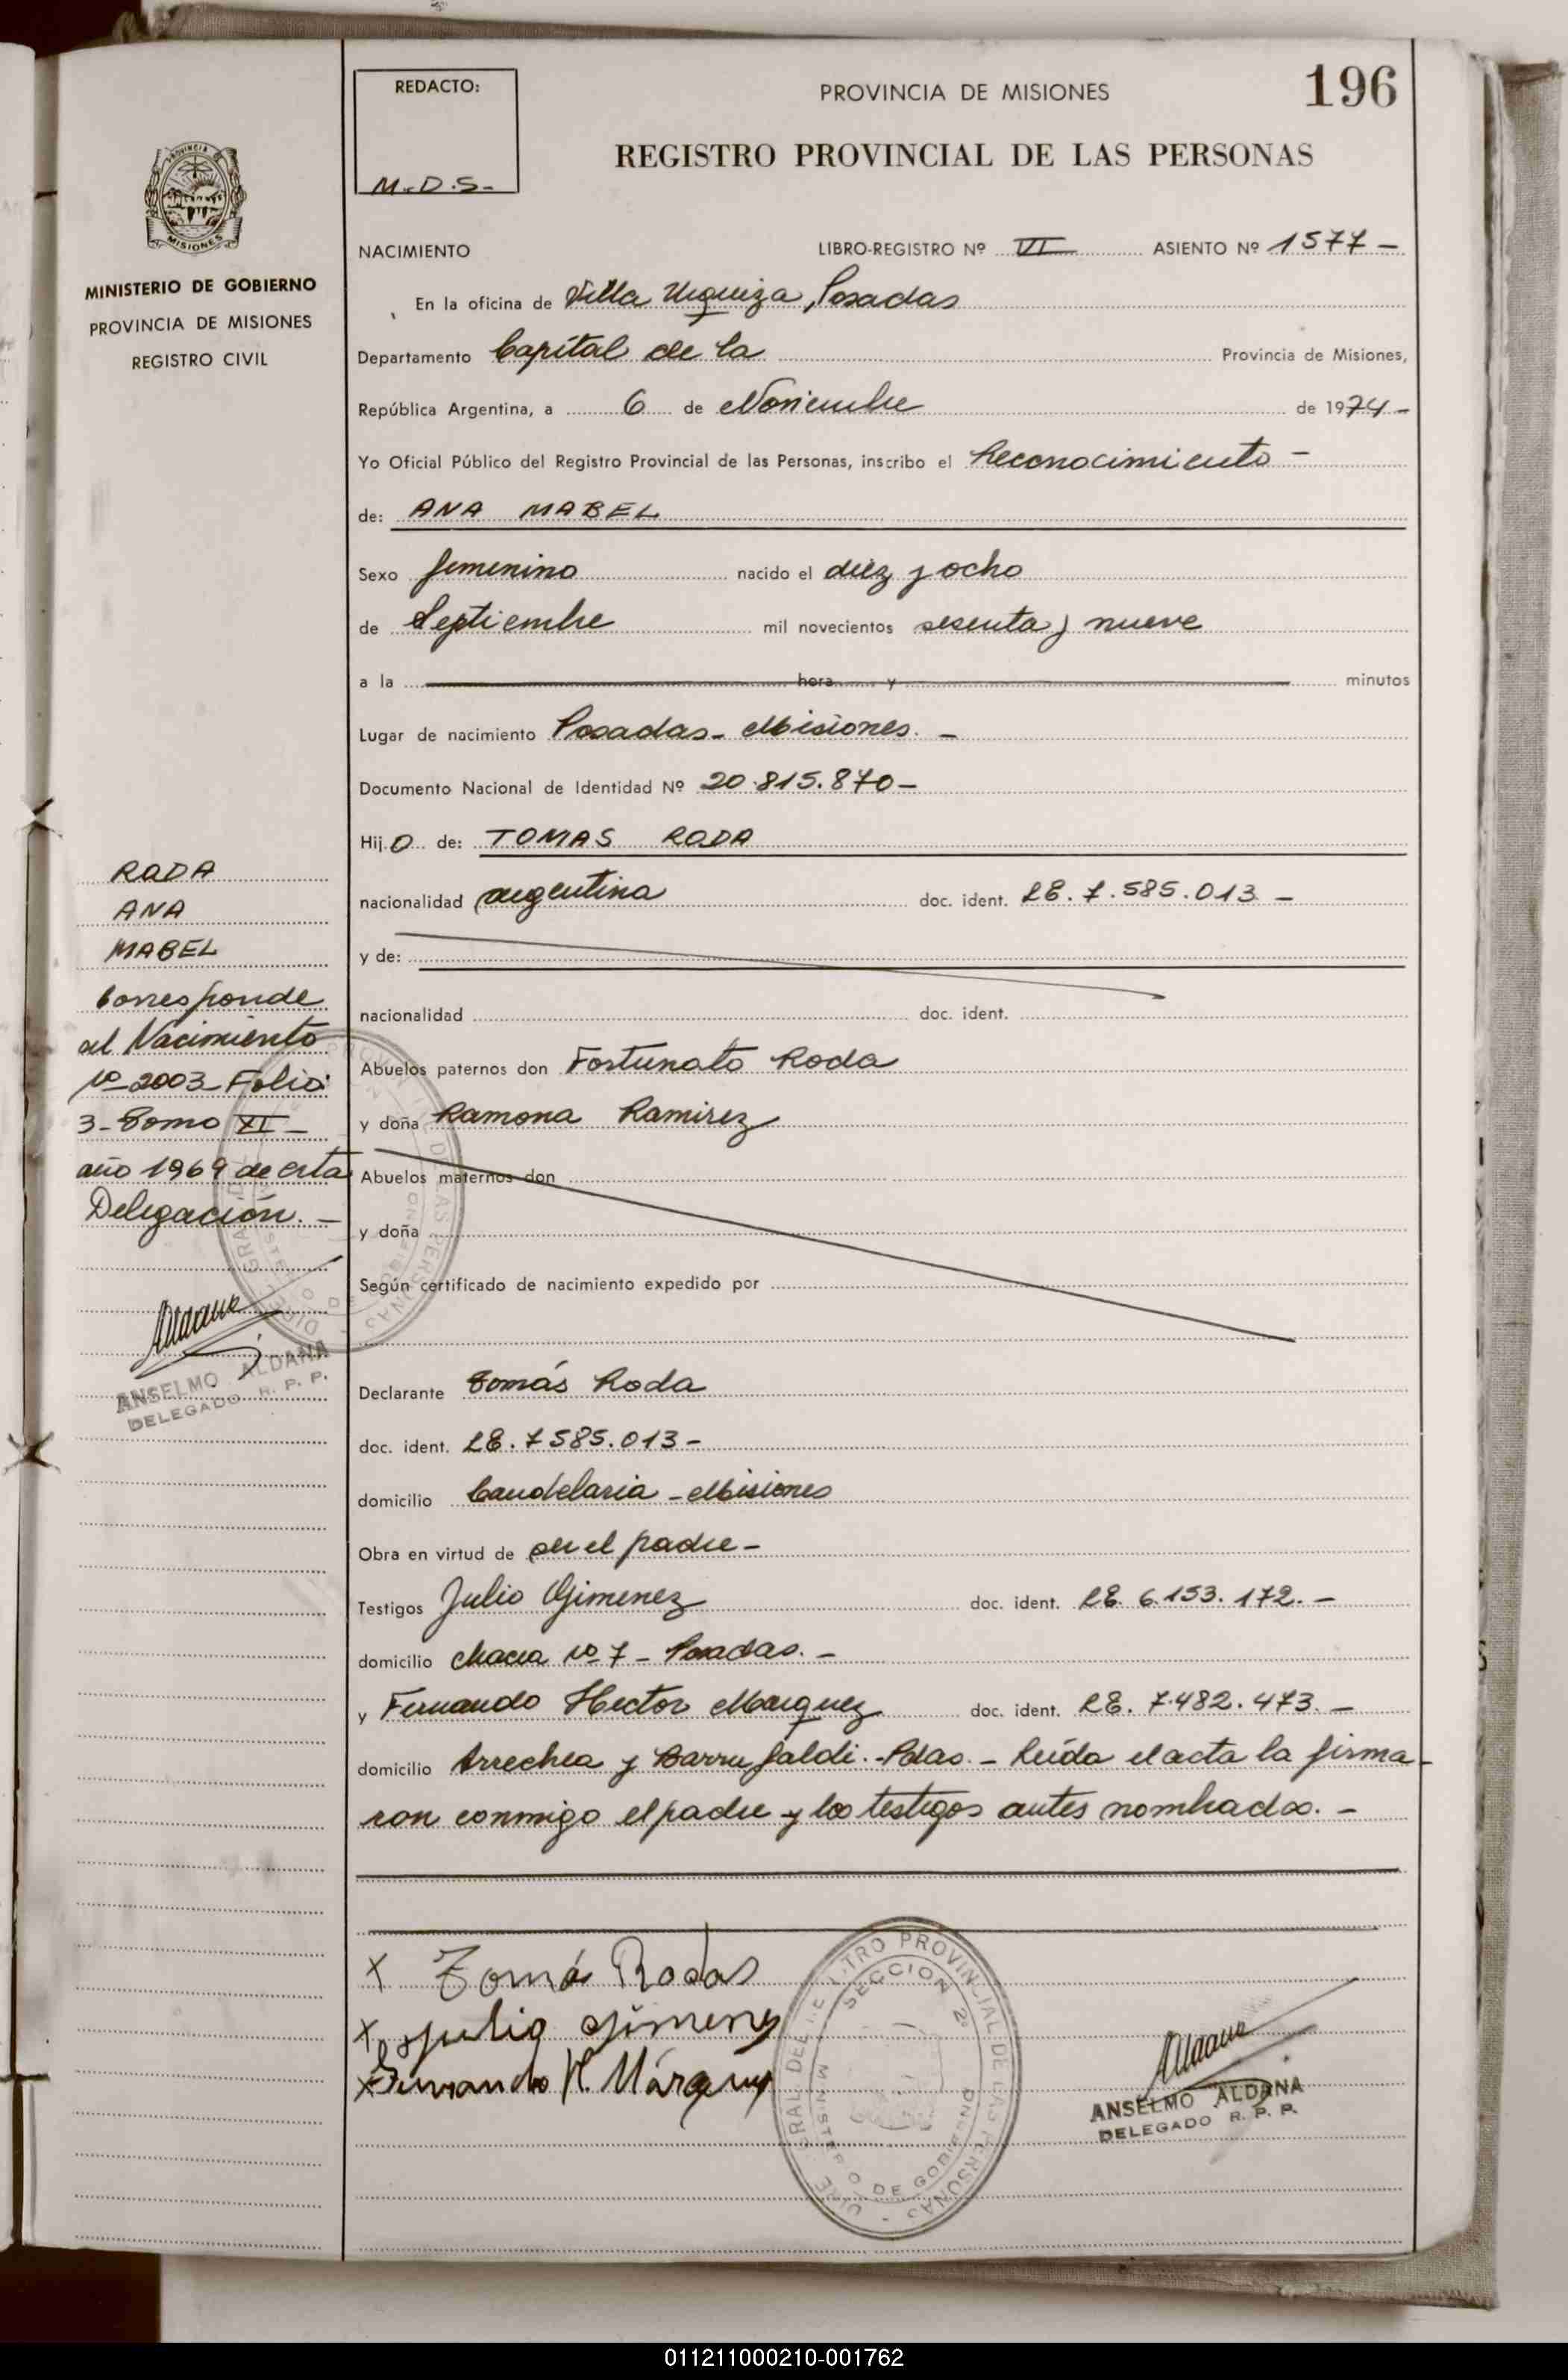 196
REDACTO:
M.D.S-
PROVINCIA DE MISIONES
REGISTRO PROVINCIAL DE LAS PERSONAS
PROVINCIA DE
MISIONES
MINISTERIO DE GOBIERNO
PROVINCIA DE MISIONES
REGISTRO CIVIL
NACIMIENTO LIBRO-REGISTRO Nº VI ASIENTO Nº 1577-
En la oficina de Villa Urquiza, Posadas
Departamento Capital de la Provincia de Misiones,
República Argentina, a 6 de Noviembre de 1974-
Yo Oficial Público del Registro Provincial de las Personas, inscribo el Reconocimiento-
de: ANA MABEL
Sexo femenino nacido el diez y ocho
de Septiembre mil novecientos sesenta y nueve
a la hora y minutos
Lugar de nacimiento Posadas- Misiones.-
Documento Nacional de Identidad Nº 20.815.870-
Hij o de: TOMAS RODA
nacionalidad argentina doc. ident. LE. 7.585.013-
y de:
nacionalidad doc. ident.
Abuelos paternos don Fortunato Roda
y doña Ramona Ramirez
Abuelos maternos don
y doña
Según certificado de nacimiento expedido por
Declarante Tomás Roda
doc. ident. LE. 7585.013-
domicilio Candelaria - Misiones
Obra en virtud de ser el padre-
Testigos Julio Gimenez doc. ident. LE. 6.153.172.-
domicilio chacra Nº 7 - Posadas.-
y Fernando Hector Marquez doc. ident. LE. 7.482.473.-
domicilio Arrechea y Barrufaldi.-Pdas.- Leída el acta la firma-
ron conmigo el padre y los testigos antes nombrados.-
RODA
ANA
MABEL
Corresponde
al Nacimiento
Nº 2003 Folio
3- Tomo XI-
año 1969 de esta
Delegación.-
ANSELMO ALDANA
DELEGADO R. P. P.
x Tomás Rodas
x Julio Gimenez
x Fernando H. Márquez
SECCION 2
MINISTERIO DE GOBIERNO
ANSELMO ALDANA
DELEGADO R. P. P.
011211000210-001762